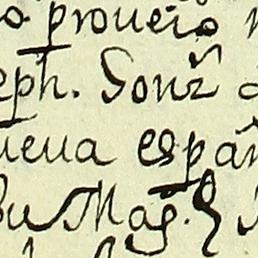 o proueio
eph. Gonz̃
ueua españ
Su Mag.